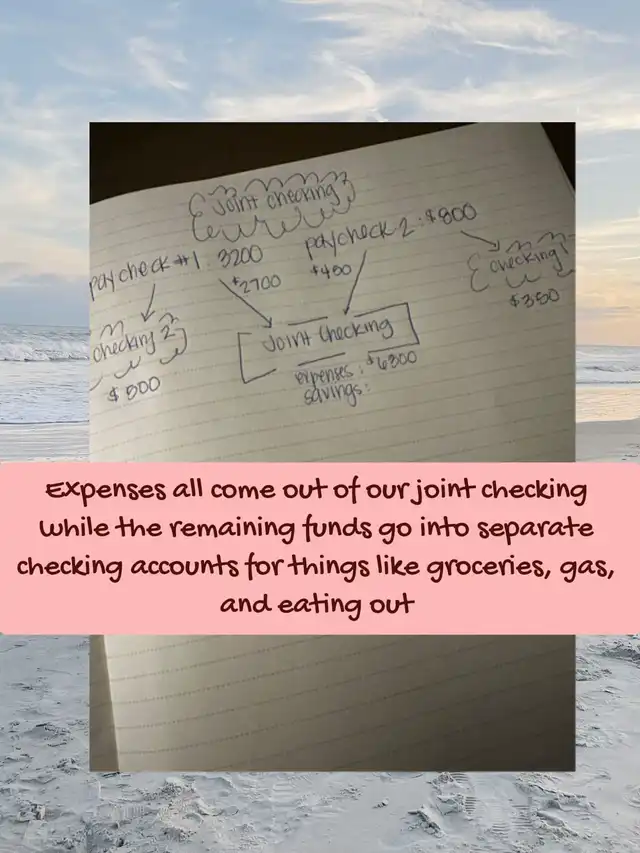 Joint Checking
paycheck #1: 3200
paycheck 2: $800
$2700
$450
checking
$350
checking 2
$500
Joint Checking
expenses: $6300
savings:
Expenses all come out of our joint checking
while the remaining funds go into separate
checking accounts for things like groceries, gas,
and eating out